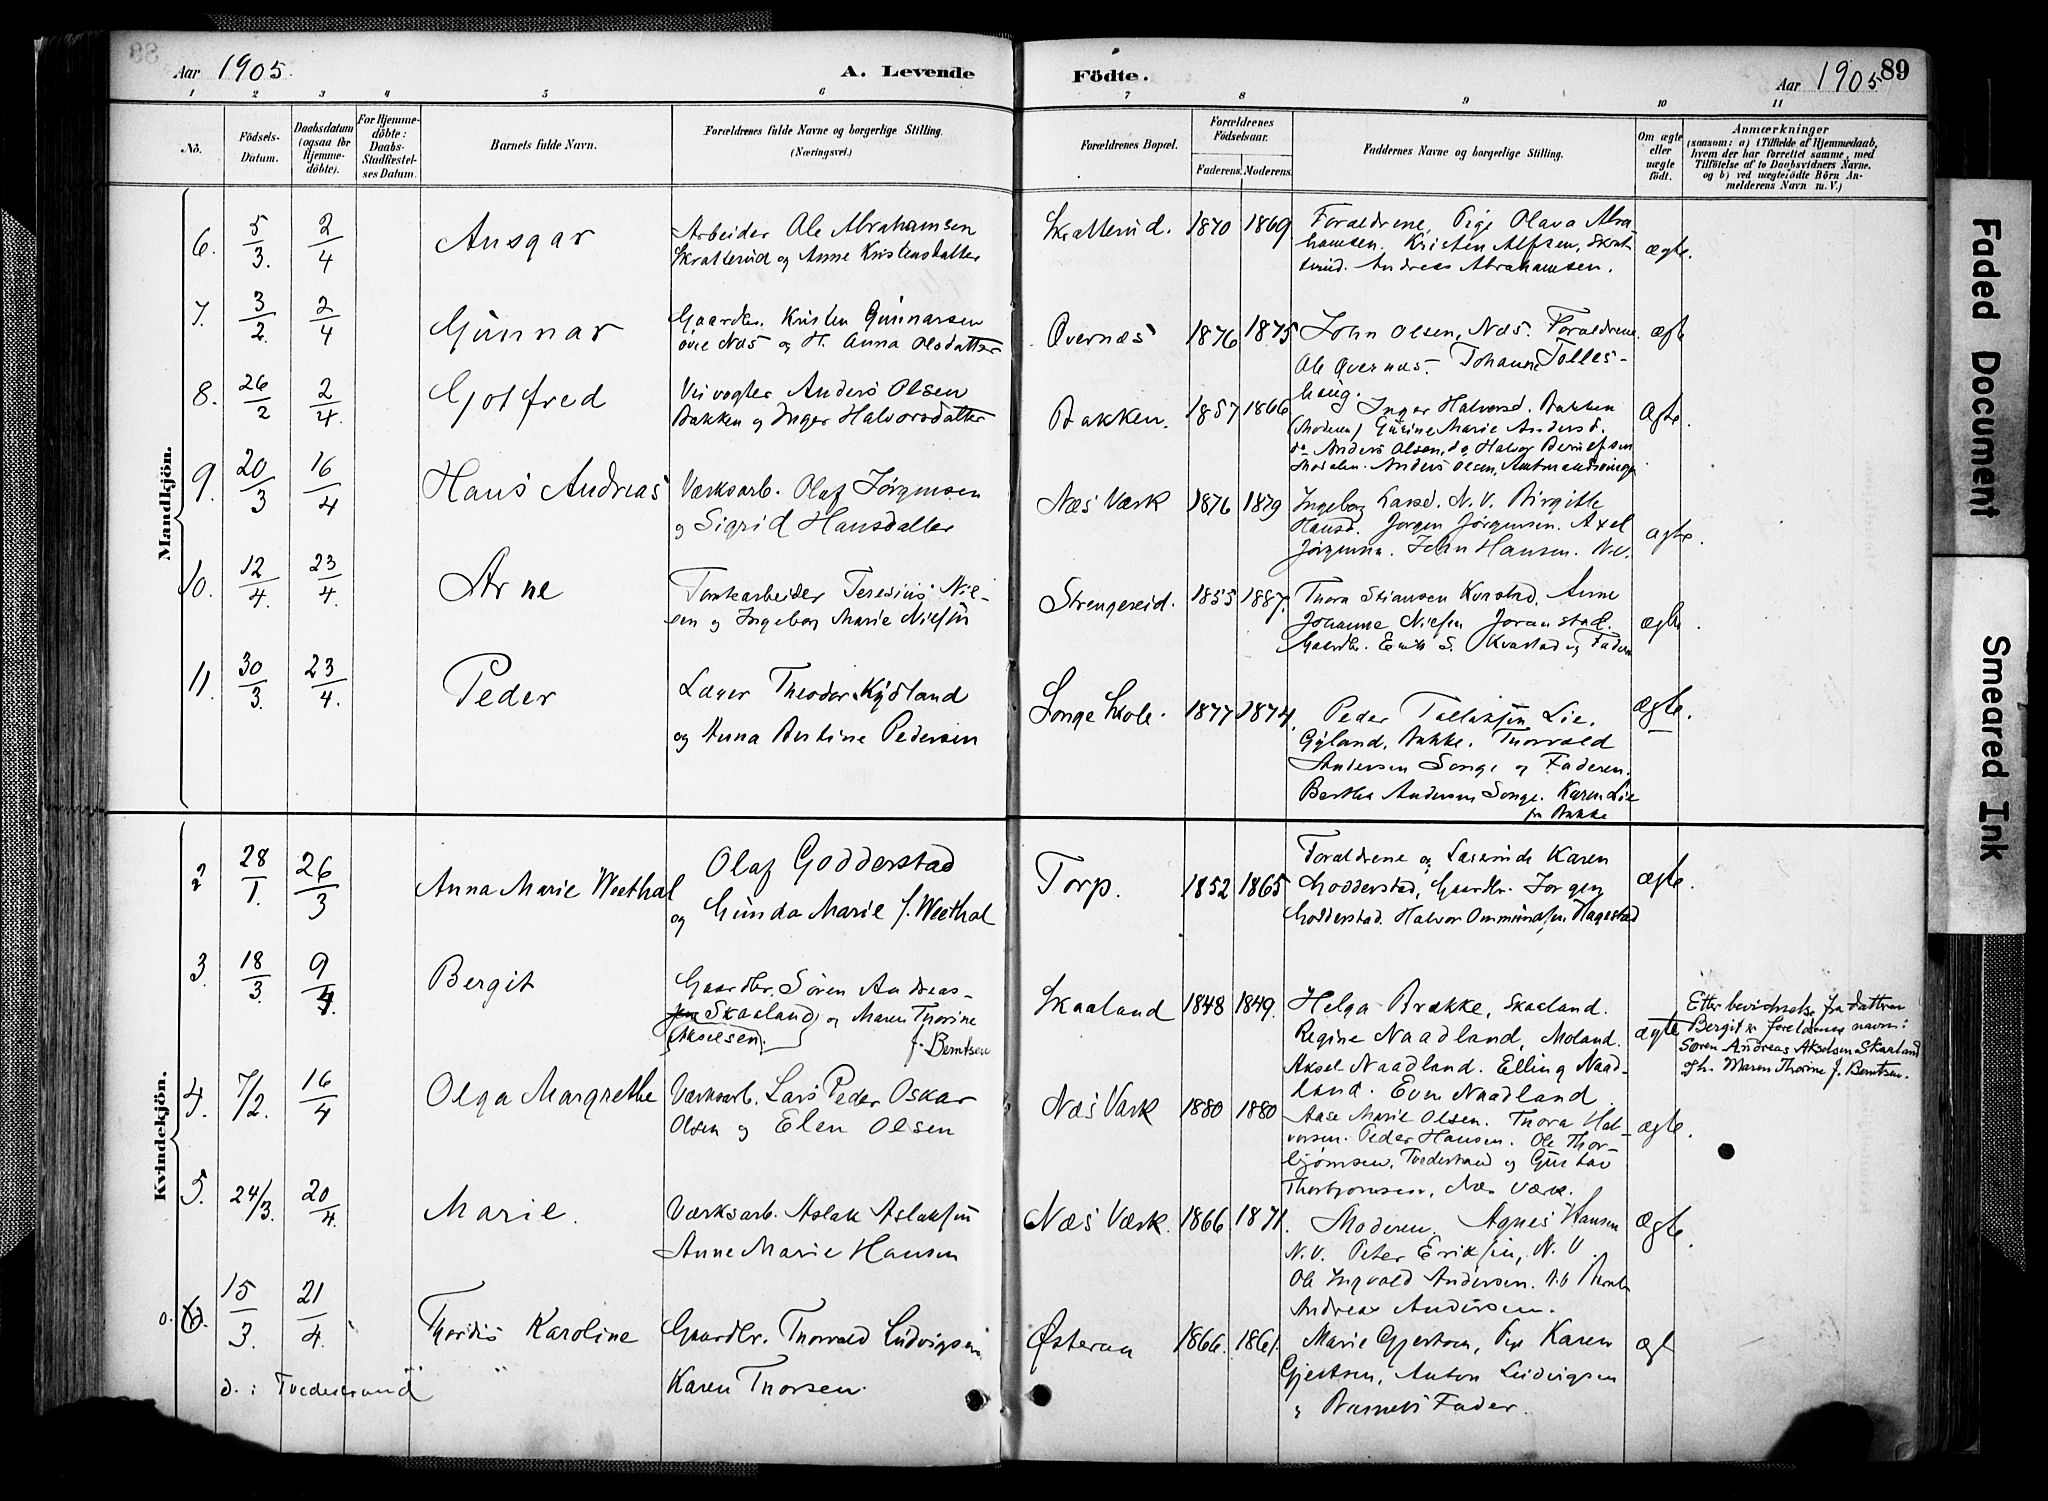 Aar 1905. A. Levende Födte. Aar 1905 89
1 2 3 4 5 6 7 8 9 10 11
No.
Födsels-Datum.
Daabsdatum (ogsaa for Hjemme-döbte).
For Hjemme-döbte: Daabs-Stadfæstel-ses Datum.
Barnets fulde Navn.
Forældrenes fulde Navne og borgerlige Stilling.
(Næringsvei.)
Forældrenes Bopæl.
Forældrenes Födselsaar.
Faderens. Moderens.
Faddernes Navne og borgerlige Stilling.
Om ægte eller uægte födt.
Anmærkninger
(saasom: a) i Tilfælde af Hjemmedaab,
hvem der har forrettet samme, med
Tilföielse af to Daabsvidners Navne.
og b) ved uægtefödte Börn An-
melderens Navn m. V.)
Mandkjön.
6. 5/3. 2/4 Ansgar
Arbeider Ole Abrahamsen
Skratterud og Anne Kristensdatter
Skratterud. 1870 1869
Forældrene, Pige Olava Abra-
hamsen. Kristen Alfsen, Skrat-
terud. Andreas Abrahamsen.
ægte.
7. 3/2. 2/4 Gunnar
Gaardbr. Kristen Gunnarsen
övre Næs og H. Anna Olsdatter
Övernæs 1876 1875
John Olsen, Næs. Forældrene
Ole Overnæs. Johanne Tolles-
haug.
ægte
8. 26/2 2/4. Gotfred
Veivogter Anders Olsen
Bakken og Inger Halvorsdatter
Bakken. 1857 1866
Inger Halvorsd. Bakken
(Moderen) Gurine Marie Andersd.
do Anders Olsen, do Halvor Berntsen
Anders Olsen,
ægte.
9. 20/3 16/4 Hans Andreas
Værksarb. Olaf Jörgensen
og Sigrid Hansdatter
Næs Værk 1876 1879
Ingeborg Larsd. N. V. Birgitte
Hansd. Jörgen Jörgensen. Axel
Jörgensen. John Hansen. N.V.
ægte.
10. 12/4. 23/4. Arne
Tomtearbeider Teresius Niel-
sen og Ingeborg Marie Nielsen
Strengereid. 1855 1887.
Thora Stiansen Kvastad. Anne
Johanne Nielsen Joranstad.
Gaardbr. Erik S. Kvastad og Faderen
ægte
11. 30/3. 23/4. Peder
Lærer Theodor Kydland
og Anna Antine Pedersen
Songe Skole. 1877 1874.
Peder Tallaksen Lie.
Gyland, Bakke. Thorvald
Andersen Songe og Faderen.
Bertha Andersen Songe. Karen Lie
fra Bakke
ægte.
Kvindekjön.
2 28/1. 26/3 Anna Marie Weethal
Olaf Godderstad
og Gunda Marie f. Weethal
Torp. 1852 1865
Forældrene og Lærerinde Karen
Godderstad, Gaardbr. Jörgen
Godderstad. Halvor Ommundsen Hagestad
ægte.
3. 18/3. 9/4. Bergit
Gaardbr. Sören Andreas-
sen Skaaland og Maren Thorine
(Akselsen). f. Berntsen
Skaaland 1848 1849.
Helga Brække, Skaaland.
Regine Naadland, Moland.
Aksel Naadland. Elling Naad-
land. Even Naadland.
ægte
Etter bevidnelse fra datteren
Bergit er foreldrenes navn:
Sören Andreas Akselsen Skaaland
og h. Maren Thorine f. Berntsen.
4. 7/2. 16/4 Olga Margrethe
Værksarb. Lars Peder Oskar
Olsen og Elen Olsen
Næs Værk 1880 1880
Aase Marie Olsen. Thora Hal-
vorsen. Peder Hansen. Ole Thor-
björnsen, Tvedestrand og Gustav
Thorbjörnsen, Næs Værk.
ægte.
5. 24/3. 20/4. Marie.
Værksarb. Aslak Aslaksen
Anne Marie Hansen
Næs Værk. 1866 1871.
Moderen, Agnes Hansen
N. V. Peter Eriksen, N. V.
Ole Ingvald Andersen.
Andreas Andersen.
ægte.
o. 6. 15/3. 21/4. Thordis Karoline
Gaardbr. Thorvald Ludvigsen
Karen Thorsen.
Østeraa 1866. 1861.
Marie Gjertsen, Pige Karen
Gjertsen, Anton Ludvigsen
og Barnets Fader.
ægt
d. i Tvedestrand
Faded Document
Smeared Ink